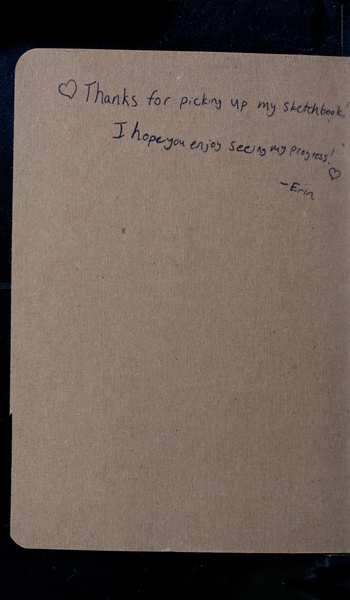 ♡ Thanks for picking up my sketchbook!
I hope you enjoy seeing my progress!
♡
-Erin